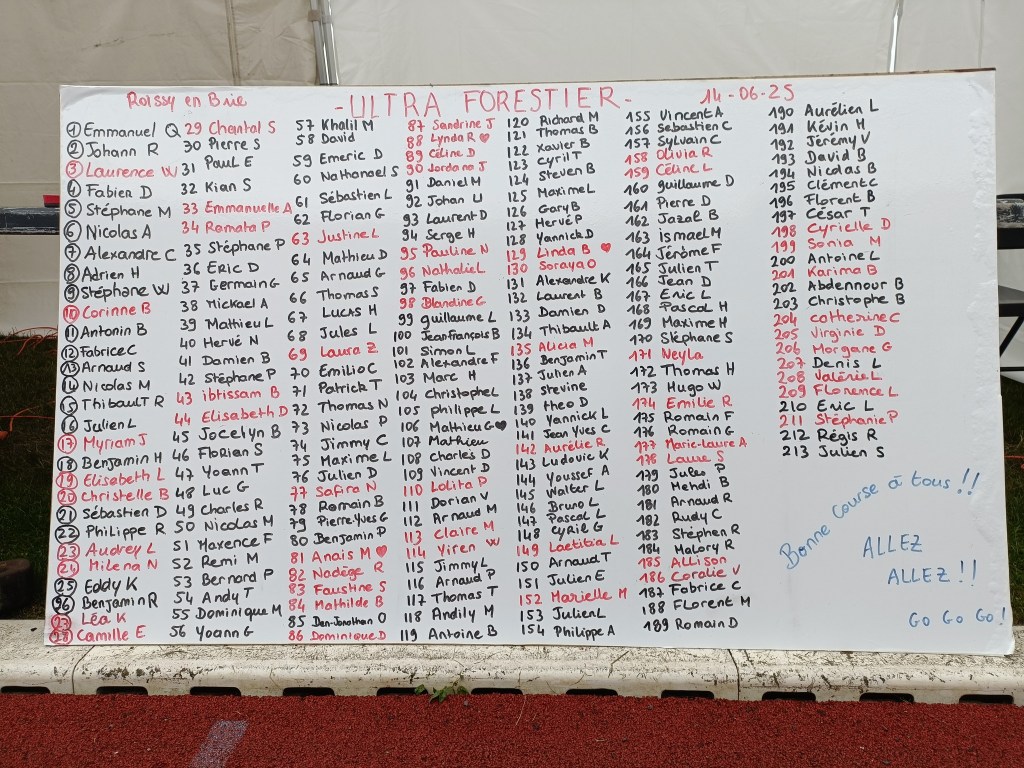 Roissy en Brie
-ULTRA FORESTIER-
14-06-25
1 Emmanuel Q
2 Johann R
3 Laurence W
4 Fabien D
5 Stéphane M
6 Nicolas A
7 Alexandre C
8 Adrien H
9 Stéphane W
10 Corinne B
11 Antonin B
12 Fabrice C
13 Arnaud S
14 Nicolas M
15 Thibault R
16 Julien L
17 Myriam J
18 Benjamin H
19 Elisabeth L
20 Christelle B
21 Sébastien D
22 Philippe R
23 Audrey L
24 Milena N
25 Eddy K
26 Benjamin R
27 Léa K
28 Camille E
29 Chantal S
30 Pierre S
31 Paul E
32 Kian S
33 Emmanuelle A
34 Romata P
35 Stéphane P
36 Eric D
37 Germain G
38 Mickael A
39 Mathieu L
40 Hervé N
41 Damien B
42 Stéphane P
43 ibtissam B
44 Elisabeth D
45 Jocelyn B
46 Florian S
47 Yoann T
48 Luc G
49 Charles R
50 Nicolas M
51 Maxence F
52 Remi M
53 Bernard P
54 Andy T
55 Dominique M
56 Yoann G
57 Khalil M
58 David
59 Emeric D
60 Nathanael S
61 Sébastien L
62 Florian G
63 Justine L
64 Mathieu D
65 Arnaud G
66 Thomas S
67 Lucas H
68 Jules L
69 Laura Z
70 Emilio C
71 Patrick T
72 Thomas N
73 Nicolas P
74 Jimmy C
75 Maxime L
76 Julien D
77 Safira N
78 Romain B
79 Pierre-Yves G
80 Benjamin P
81 Anais M ♥
82 Nadège R
83 Faustine S
84 Mathilde B
85 Den-Jonathan O
86 Dominique D
87 Sandrine J
88 Lynda R ♥
89 Céline D
90 Jordana J
91 Daniel M
92 Johan U
93 Laurent D
94 Serge H
95 Pauline N
96 Nathalie L
97 Fabien D
98 Blandine G
99 guillaume L
100 Jean François B
101 Simon L
102 Alexandre F
103 Marc H
104 Christophe L
105 philippe L
106 Mathieu G ♥
107 Mathieu
108 Charles D
109 Vincent D
110 Lolita P
111 Dorian V
112 Arnaud M
113 Claire M
114 Yiren W
115 Jimmy L
116 Arnaud P
117 Thomas T
118 Andily M
119 Antoine B
120 Richard M
121 Thomas B
122 Xavier B
123 Cyril T
124 Steven B
125 Maxime L
126 Gary B
127 Hervé P
128 Yannick D
129 Linda B ♥
130 Soraya O
131 Alexandre K
132 Laurent B
133 Damien D
134 Thibault A
135 Alicia M
136 Benjamin T
137 Julien A
138 Stevine
139 theo D
140 Yannick L
141 Jean Yves C
142 Aurélie R
143 Ludovik K
144 Youssef A
145 Walter L
146 Bruno L
147 Pascal L
148 Cyril G
149 Laetitia L
150 Arnaud T
151 Julien E
152 Marielle M
153 Julien L
154 Philippe A
155 Vincent A
156 Sebastien C
157 Sylvain C
158 Olivia R
159 Céline L
160 guillaume D
161 Pierre D
162 Jazal B
163 ismael M
164 Jérôme F
165 Julien T
166 Jean D
167 Eric L
168 Pascal H
169 Maxime H
170 Stéphane S
171 Neyla
172 Thomas H
173 Hugo W
174 Emilie R
175 Romain F
176 Romain G
177 Marie-Laure A
178 Laure S
179 Jules P
180 Mehdi B
181 Arnaud R
182 Rudy C
183 Stephen R
184 Malory R
185 Allison
186 Coralie V
187 Fabrice C
188 Florent M
189 Romain D
190 Aurélien L
191 Kévin H
192 Jérémy V
193 David B
194 Nicolas B
195 Clément C
196 Florent B
197 César T
198 Cyrielle D
199 Sonia M
200 Antoine L
201 Karima B
202 Abdennour B
203 Christophe B
204 Catherine C
205 Virginie D
206 Morgane G
207 Denis L
208 Valérie L
209 Florence L
210 Eric L
211 Stéphanie P
212 Régis R
213 Julien S
Bonne course à tous !!
ALLEZ
ALLEZ !!
GO GO GO !